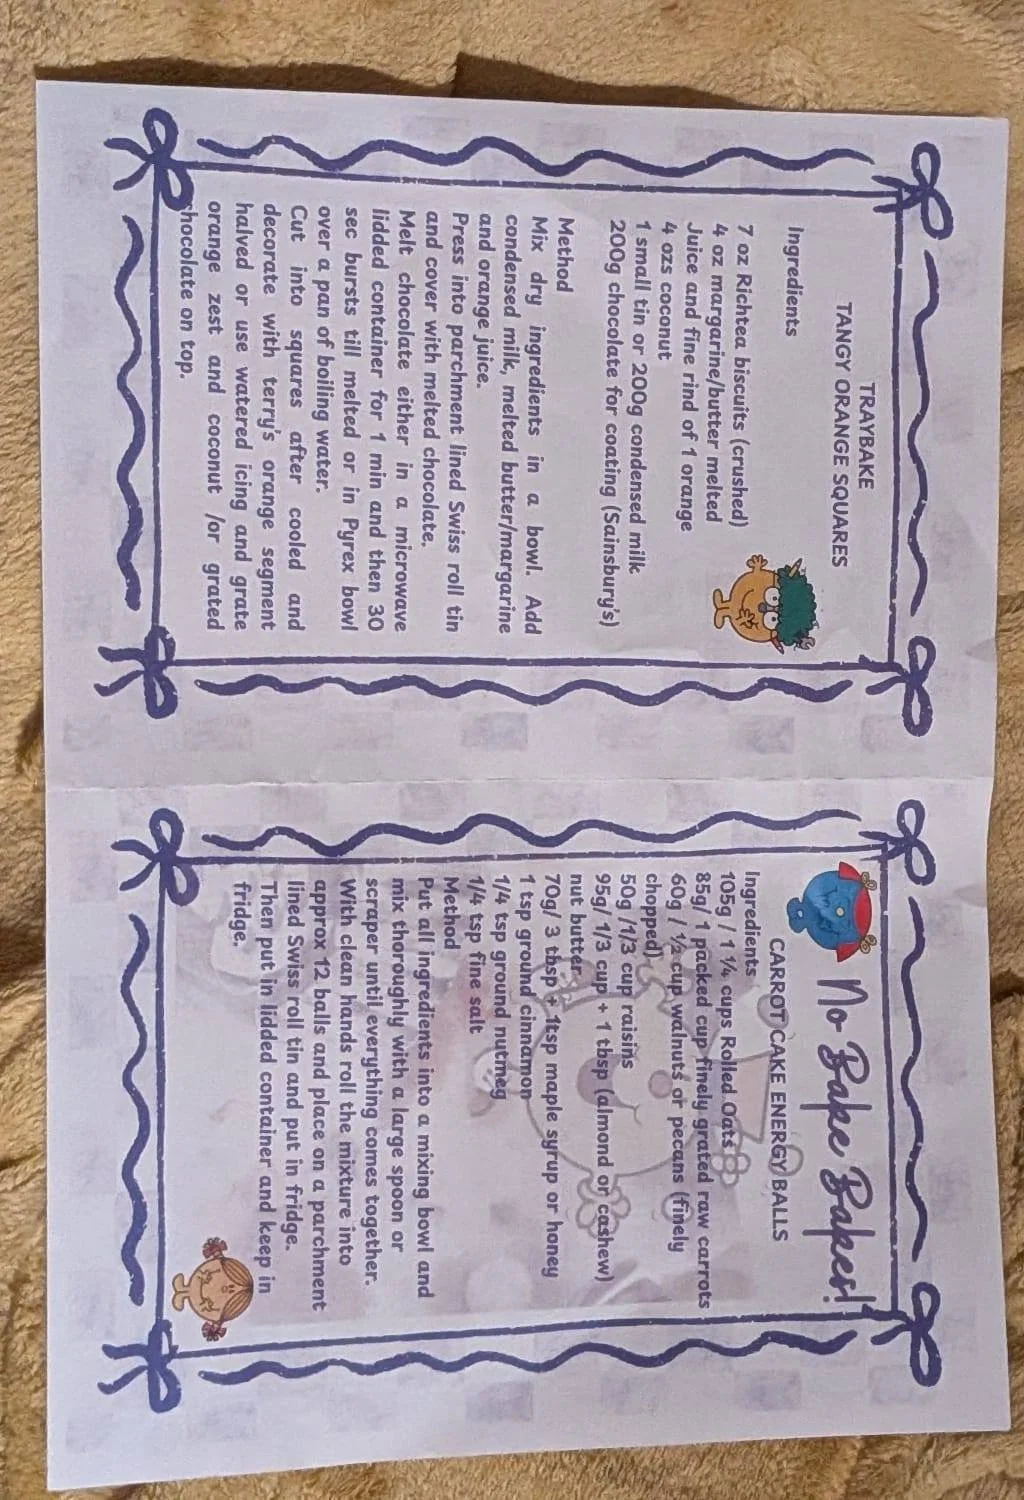 TRAYBAKE
TANGY ORANGE SQUARES
Ingredients
7 oz Richtea biscuits (crushed)
4 oz margarine/butter melted
Juice and fine rind of 1 orange
4 ozs coconut
1 small tin or 200g condensed milk
200g chocolate for coating (Sainsbury's)
Method
Mix dry ingredients in a bowl. Add
condensed milk, melted butter/margarine
and orange juice.
Press into parchment lined Swiss roll tin
and cover with melted chocolate.
Melt chocolate either in a microwave
lidded container for 1 min and then 30
sec bursts till melted or in Pyrex bowl
over a pan of boiling water.
Cut into squares after cooled and
decorate with terry's orange segment
halved or use watered icing and grate
orange zest and coconut /or grated
chocolate on top.
No Bake Bakes!
CARROT CAKE ENERGY BALLS
Ingredients
105g / 1 ¼ cups Rolled Oats
85g/ 1 packed cup finely grated raw carrots
60g / ½ cup walnuts or pecans (finely
chopped)
50g /1/3 cup raisins
95g/ 1/3 cup + 1 tbsp (almond or cashew)
nut butter
70g/ 3 tbsp + 1tsp maple syrup or honey
1 tsp ground cinnamon
1/4 tsp ground nutmeg
1/4 tsp fine salt
Method
Put all ingredients into a mixing bowl and
mix thoroughly with a large spoon or
scraper until everything comes together.
With clean hands roll the mixture into
approx 12 balls and place on a parchment
lined Swiss roll tin and put in fridge.
Then put in lidded container and keep in
fridge.